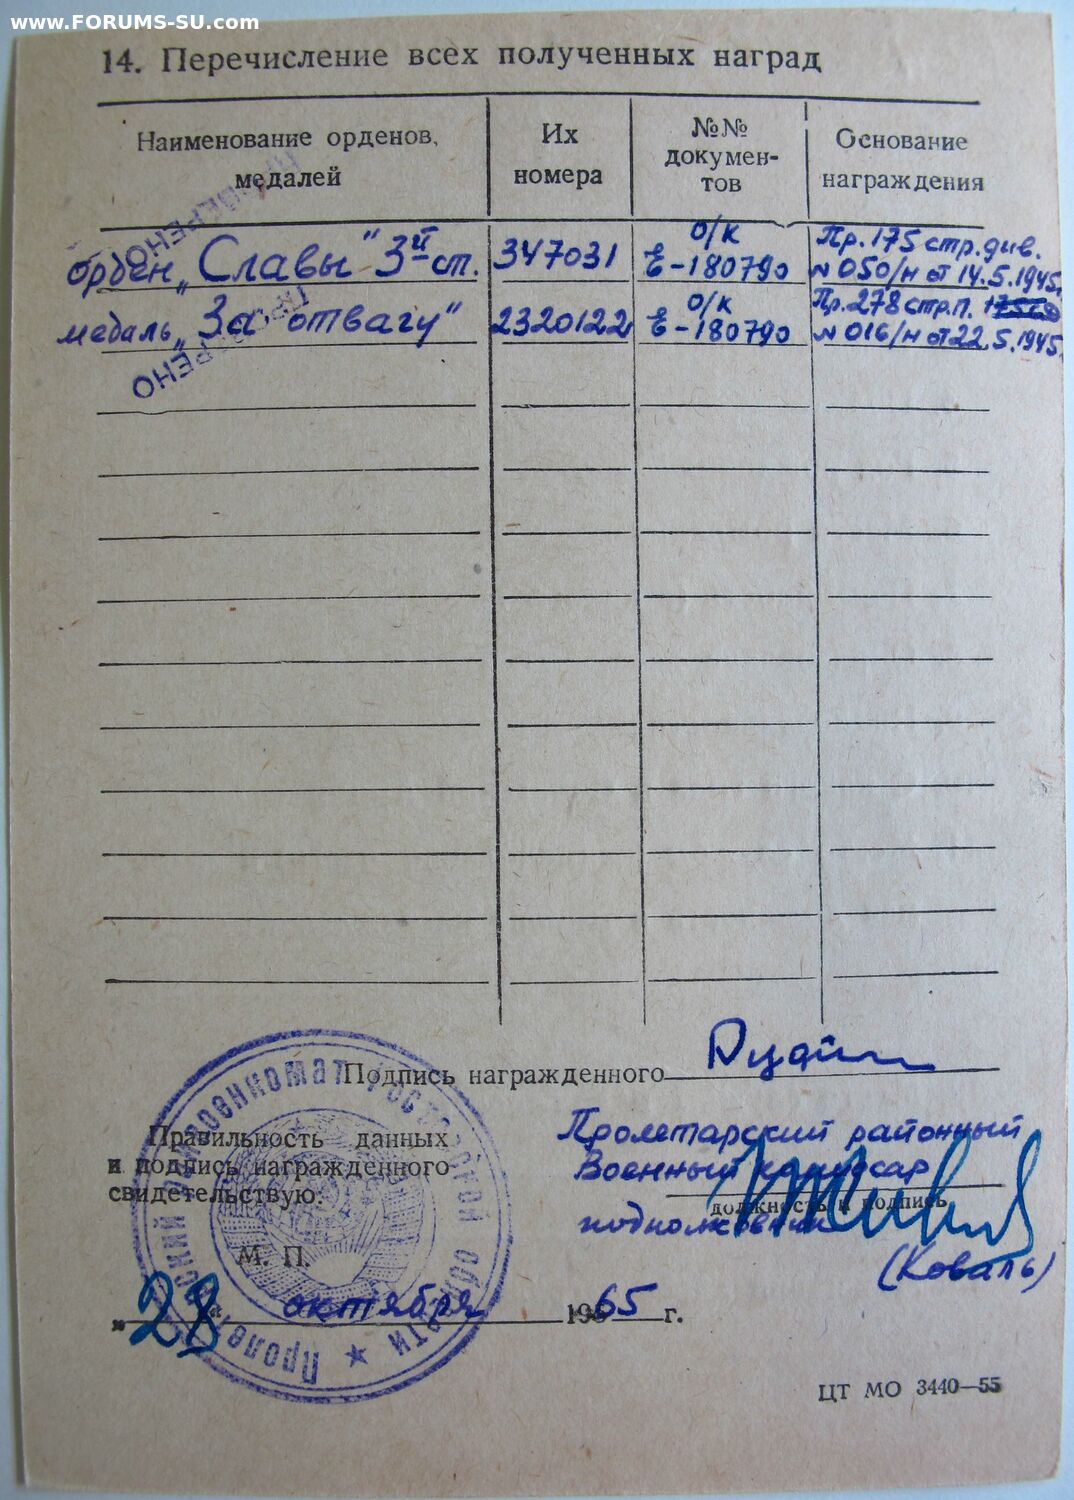 www.FORUMS-SU.com
14. Перечисление всех полученных наград
Наименование орденов, медалей
Их номера
№№ докумен-тов
Основание награждения
орден „Славы" 3й ст.
347031
о/к
Е-180790
Пр. 175 стр. див.
№ 050/н от 14.5.1945г.
медаль „За отвагу"
2320122
о/к
Е-180790
Пр. 278 стр.п.
№ 016/н от 22.5.1945г.
ПРОВЕРЕНО
ПРОВЕРЕНО
Подпись награжденного
Правильность данных
и подпись награжденного
свидетельствую:
Пролетарский районный
Военный комиссар
должность и подпись
подполковник
(Коваль)
М. П.
„28" октября 1965 г.
Пролетарский райвоенкомат Ростовской области
ЦТ МО 3440—55